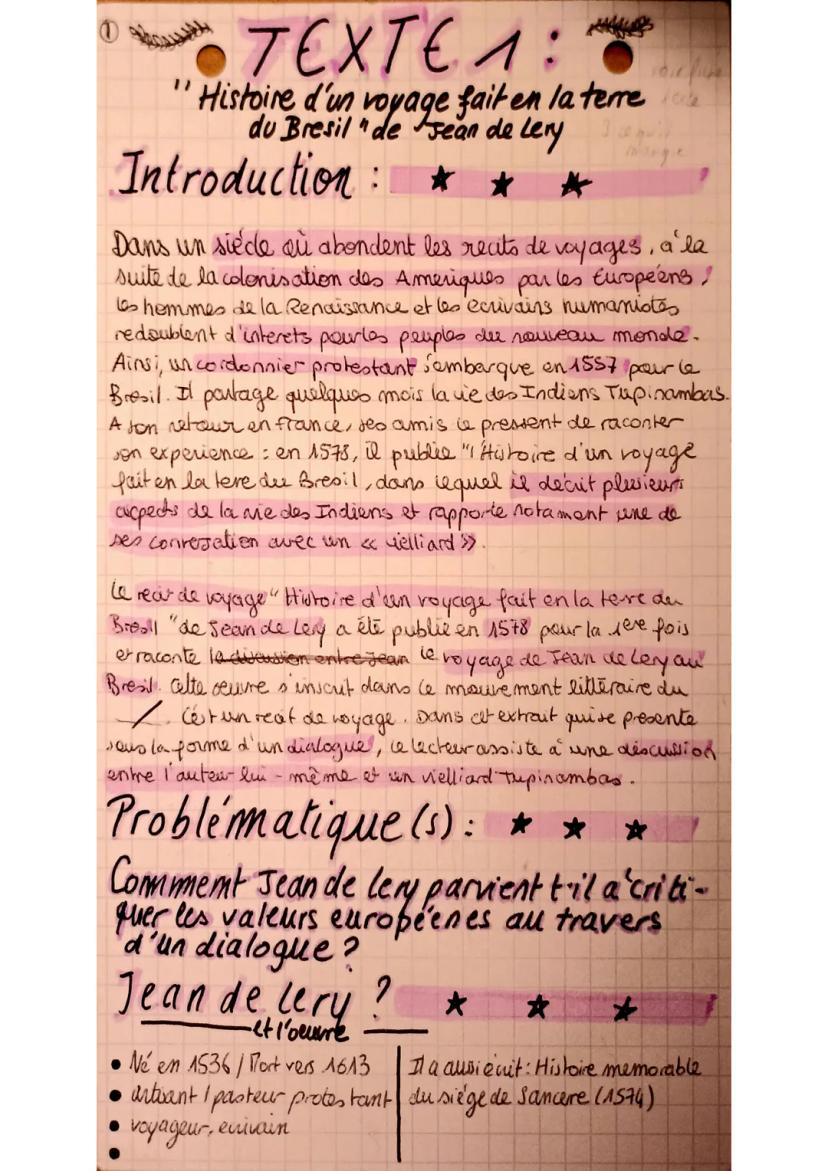 1
TEXTE 1 :
"Histoire d'un voyage fait en la terre
du Bresil" de Jean de Lery
Introduction :
Dans un siécle où abondent les recits de voyages, à la
suite de la colonisation des Ameriques par les Européens,
les hommes de la Renaissance et les ecrivains humanistes
redoublent d'interets pour les peuples du nouveau monde.
Ainsi, un cordonnier protestant s'embarque en 1557 pour le
Bresil. Il partage quelques mois la vie des Indiens Tupinambas.
A son retour en france, ses amis le pressent de raconter
son experience : en 1578, il publie "l'Histoire d'un voyage
fait en la tere du Bresil, dans lequel il décrit plusieurs
aspects de la vie des Indiens et rapporte notament une de
ses conversation avec un « vielliard ».
Le recit de voyage "Histoire d'un voyage fait en la terre du
Bresil" de Jean de Lery a été publié en 1578 pour la 1ere fois
et raconte la discussion entre Jean le voyage de Jean de Lery au
Bresil. Cette oeuvre s'inscrit dans le mouvement littéraire du
/. C'est un recit de voyage. Dans cet extrait qui se presente
sous la forme d'un dialogue, le lecteur assiste à une discussion
entre l'auteur lui-même et un vielliard tupinambas.
Problématique(s) :
Comment Jean de Lery parvient t-il à criti-
quer les valeurs européenes au travers
d'un dialogue ?
Jean de Lery ?
et l'oeuvre
• Né en 1536 / Mort vers 1613
• artisant / pasteur protestant
• voyageur, ecrivain
•
Il a aussi écrit : Histoire memorable
du siége de Sancere (1574)